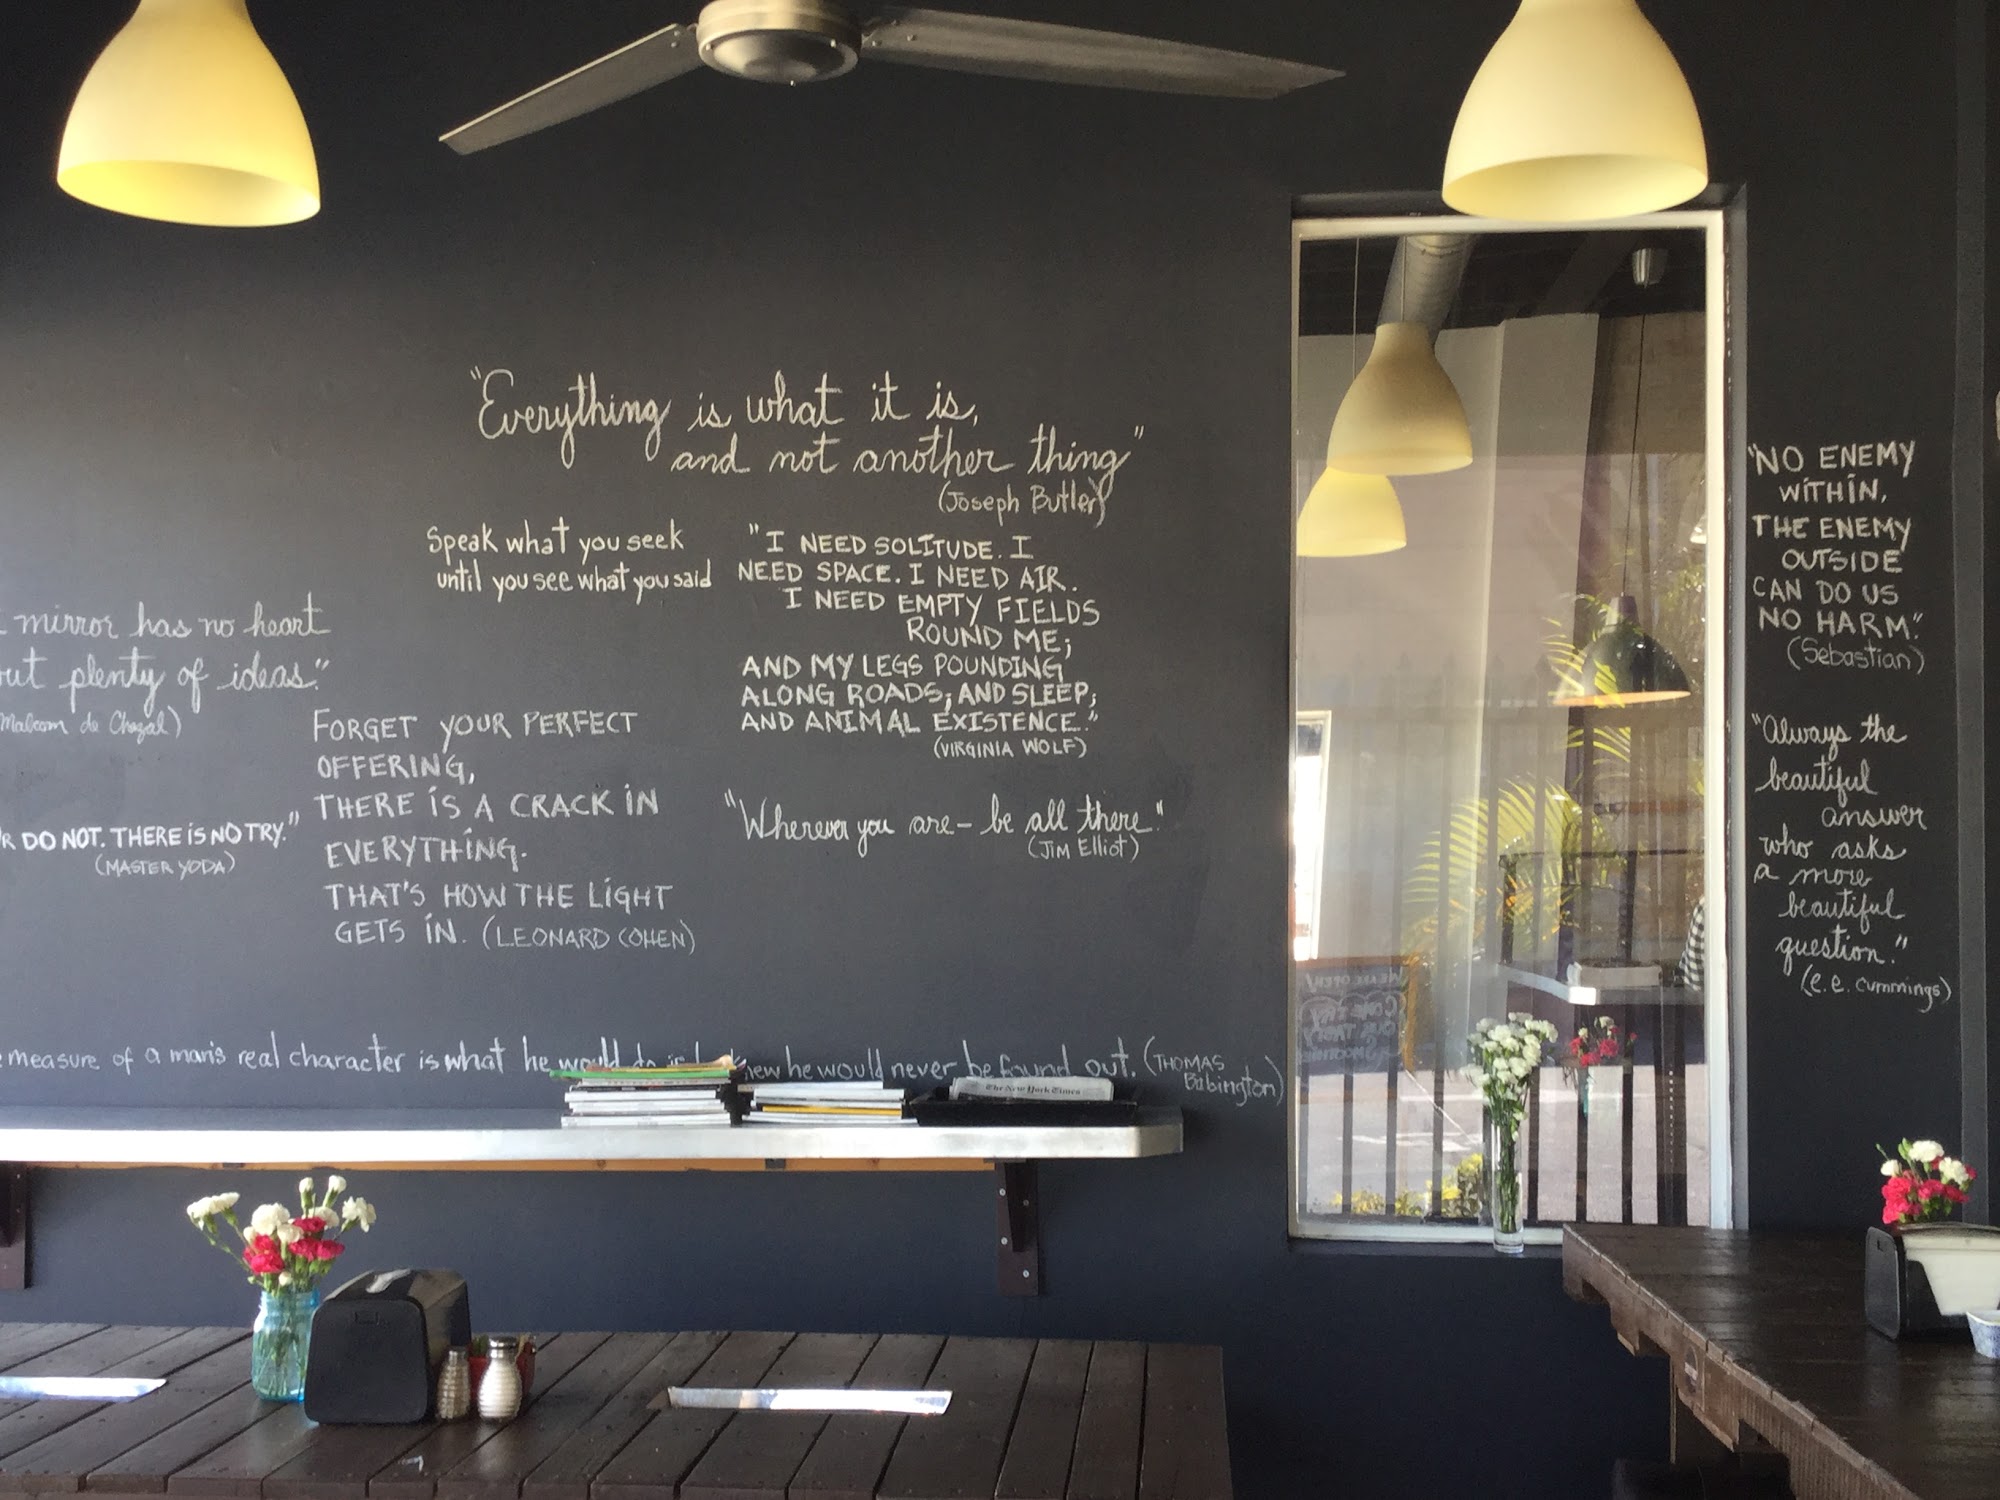 "Everything is what it is,
and not another thing"
(Joseph Butler)
Speak what you seek
until you see what you said
"I NEED SOLITUDE. I
NEED SPACE. I NEED AIR.
I NEED EMPTY FIELDS
ROUND ME;
AND MY LEGS POUNDING
ALONG ROADS; AND SLEEP;
AND ANIMAL EXISTENCE."
(VIRGINIA WOLF)
mirror has no heart
plenty of ideas."
Malcom de Chazal)
FORGET YOUR PERFECT
OFFERING,
THERE IS A CRACK IN
EVERYTHING.
THAT'S HOW THE LIGHT
GETS IN. (LEONARD COHEN)
DO NOT. THERE IS NO TRY."
(MASTER YODA)
"Wherever you are - be all there."
(JIM Elliot)
measure of a man's real character is what he would do he would never be found out. (THOMAS
Babington)
The New York Times
"NO ENEMY
WITHIN,
THE ENEMY
OUTSIDE
CAN DO US
NO HARM."
(Sebastian)
"Always the
beautiful
answer
who asks
a more
beautiful
question."
(e.e. cummings)
WE ARE OPEN!
COME TRY
OUR TASTY
SMOOTHIES